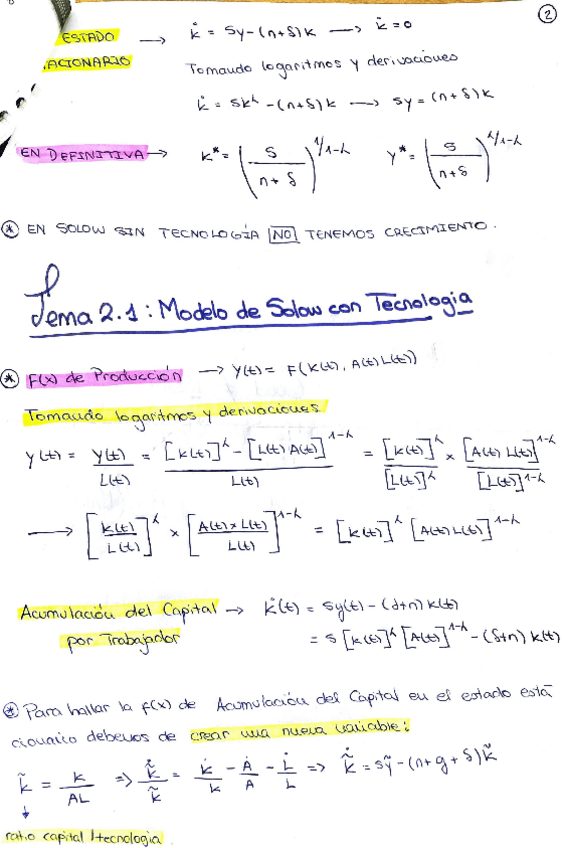 ②
ESTADO → k̇ = sy - (n+δ)k → k̇ = 0
ACIONARIO Tomando logaritmos y derivaciones
k̇ = sk^λ - (n+δ)k → sy = (n+δ)k
EN DEFINITIVA → k* = (s / (n+δ))^1/1-λ y* = (s / (n+δ))^λ/1-λ
* EN SOLOW SIN TECNOLOGÍA NO TENEMOS CRECIMIENTO.
Tema 2.1: Modelo de Solow con Tecnologia
* F(x) de Producción → Y(t) = F(K(t), A(t)L(t))
Tomando logaritmos y derivaciones
y(t) = Y(t)/L(t) = [K(t)]^λ - [L(t) A(t)]^1-λ / L(t) = [K(t)]^λ / [L(t)]^λ × [A(t) L(t)]^1-λ / [L(t)]^1-λ
→ [K(t)/L(t)]^λ × [A(t) × L(t) / L(t)]^1-λ = [k(t)]^λ [A(t) L(t)]^1-λ
Acumulación del Capital → k̇(t) = sy(t) - (δ+n) k(t)
por Trabajador = s [k(t)]^λ [A(t)]^1-λ - (δ+n) k(t)
* Para hallar la f(x) de Acumulación del Capital en el estado está
cionario debemos de crear una nueva variable:
k̃ = k/AL ⇒ k̃̇/k̃ = k̇/k - Ȧ/A - L̇/L ⇒ k̃̇ = sỹ - (n+g+δ)k̃
↓
ratio capital/tecnologia